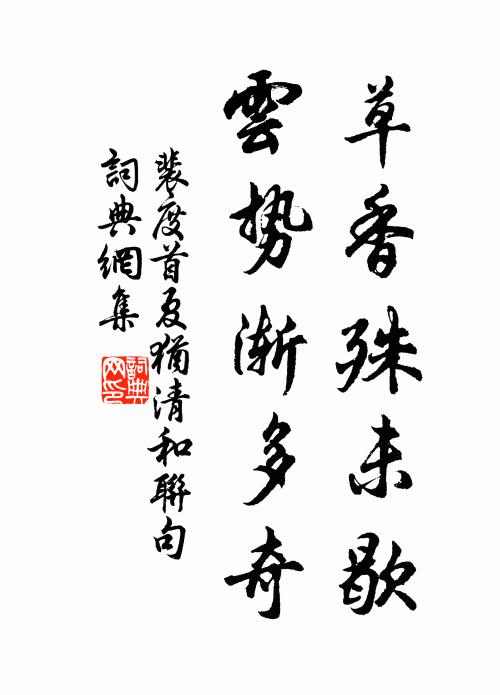 草香殊未歇
雲勢漸多奇
裴度首夏猶清和聯句
詞典網集
詞典網印